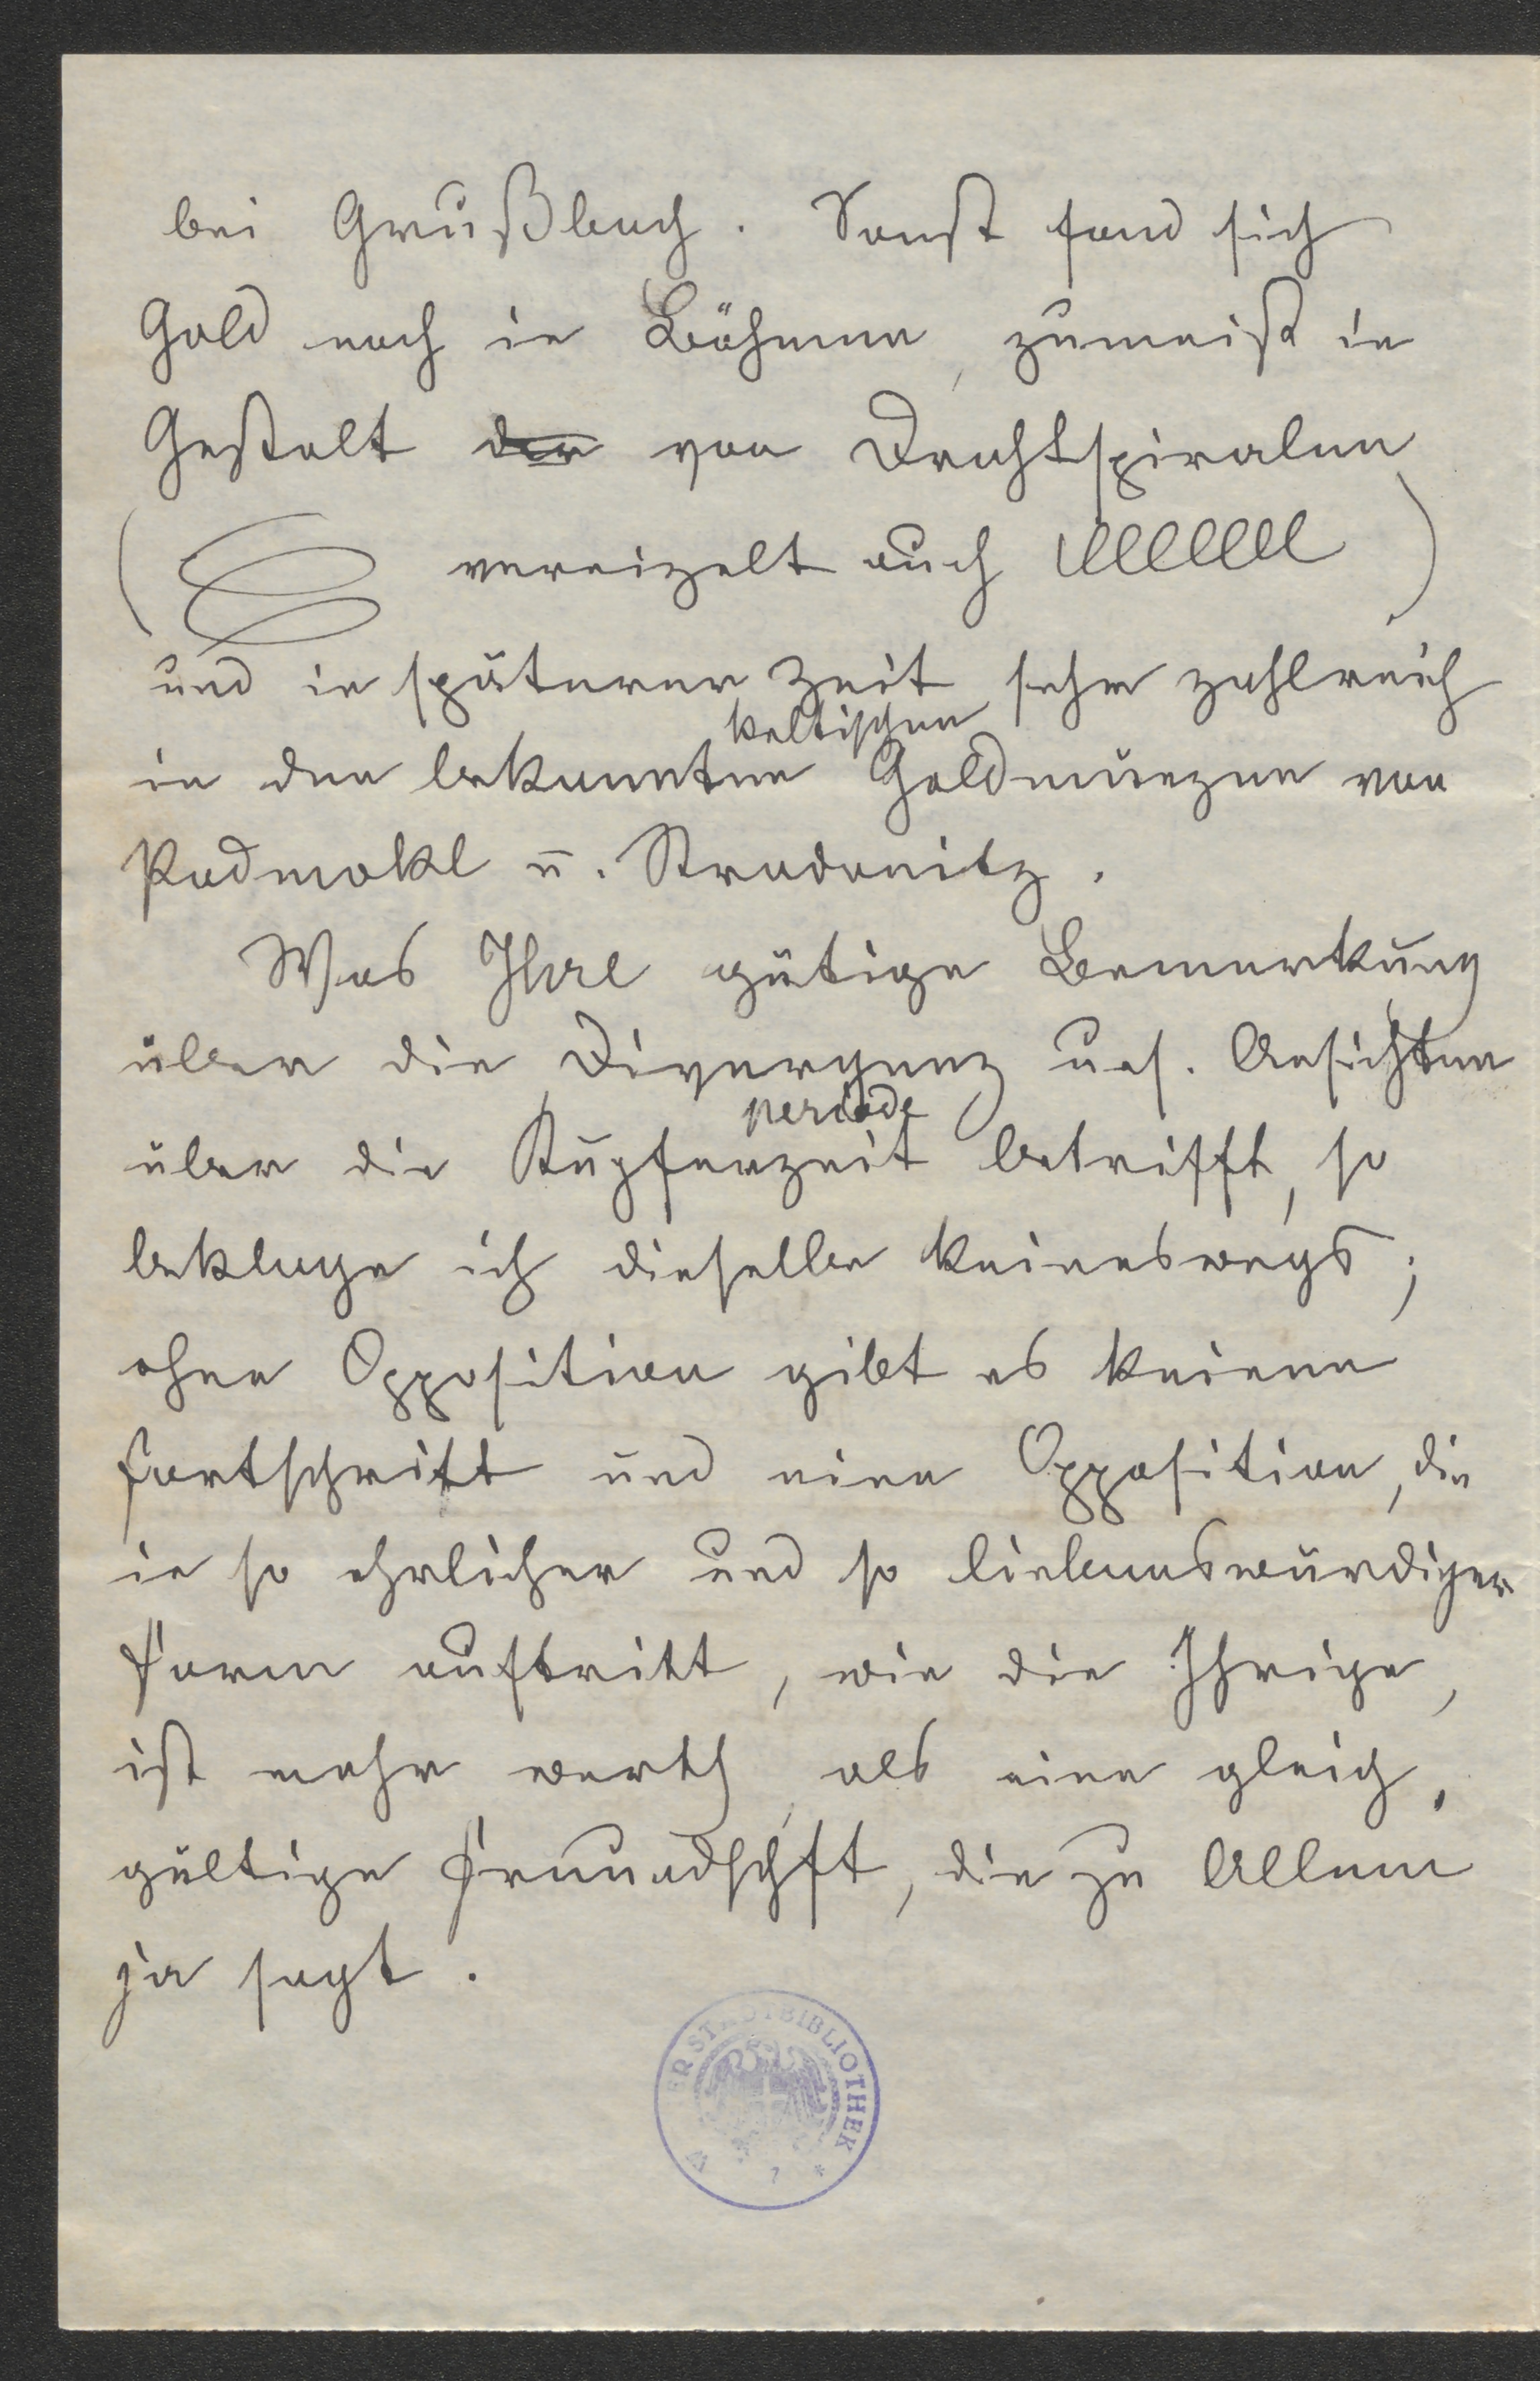 bei Grußbach. Sonst fand sich
Gold noch in Böhmen, zumeist in
Gestalt der von Drahtspiralen
( vereizelt auch )
und in späterer Zeit sehr zahlreich
keltischen
in den bekannten Goldmünzen von
Podmokl u. Stradonitz.
Was Ihre gütige Bemerkung
über die Divergenz uns. Ansichten
periode
über die Kupferzeit betrifft, so
beklage ich dieselbe keineswegs;
ohne Opposition gibt es keinen
Fortschritt und eine Opposition, die
in so ehrlicher und so liebenswürdiger
Form auftritt, wie die Ihrige,
ist mehr werth, als eine gleich-
gültige Freundschft, die zu Allem
ja sagt.
ER STADTBIBLIOTHEK